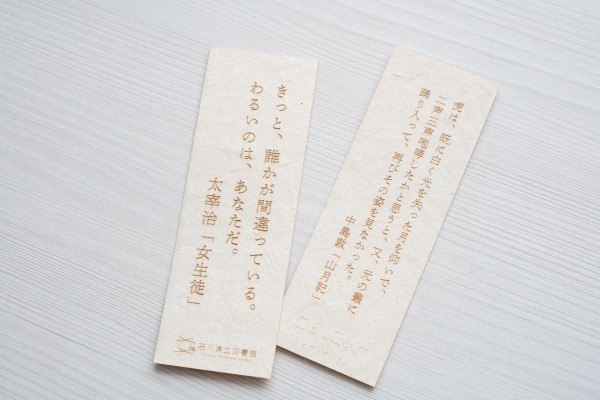 きっと、誰かが間違っている。
わるいのは、あなただ。
太宰治「女生徒」
石川県立図書館
虎は、既に白く光を失った月を仰いで、
二声三声咆哮したかと思うと、又、元の叢に
躍り入って、再びその姿を見なかった。
中島敦「山月記」